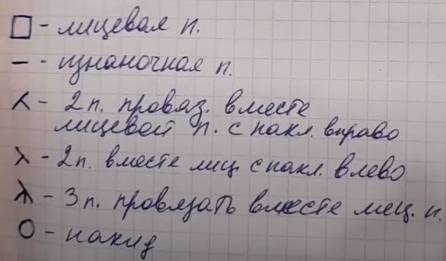 □ - лицевая п.
— - изнаночная п.
⋌ - 2 п. провяз. вместе
лицевой п. с накл. вправо
λ - 2 п. вместе лиц с накл. влево
⅄ - 3 п. провязать вместе лиц. п.
O - накид